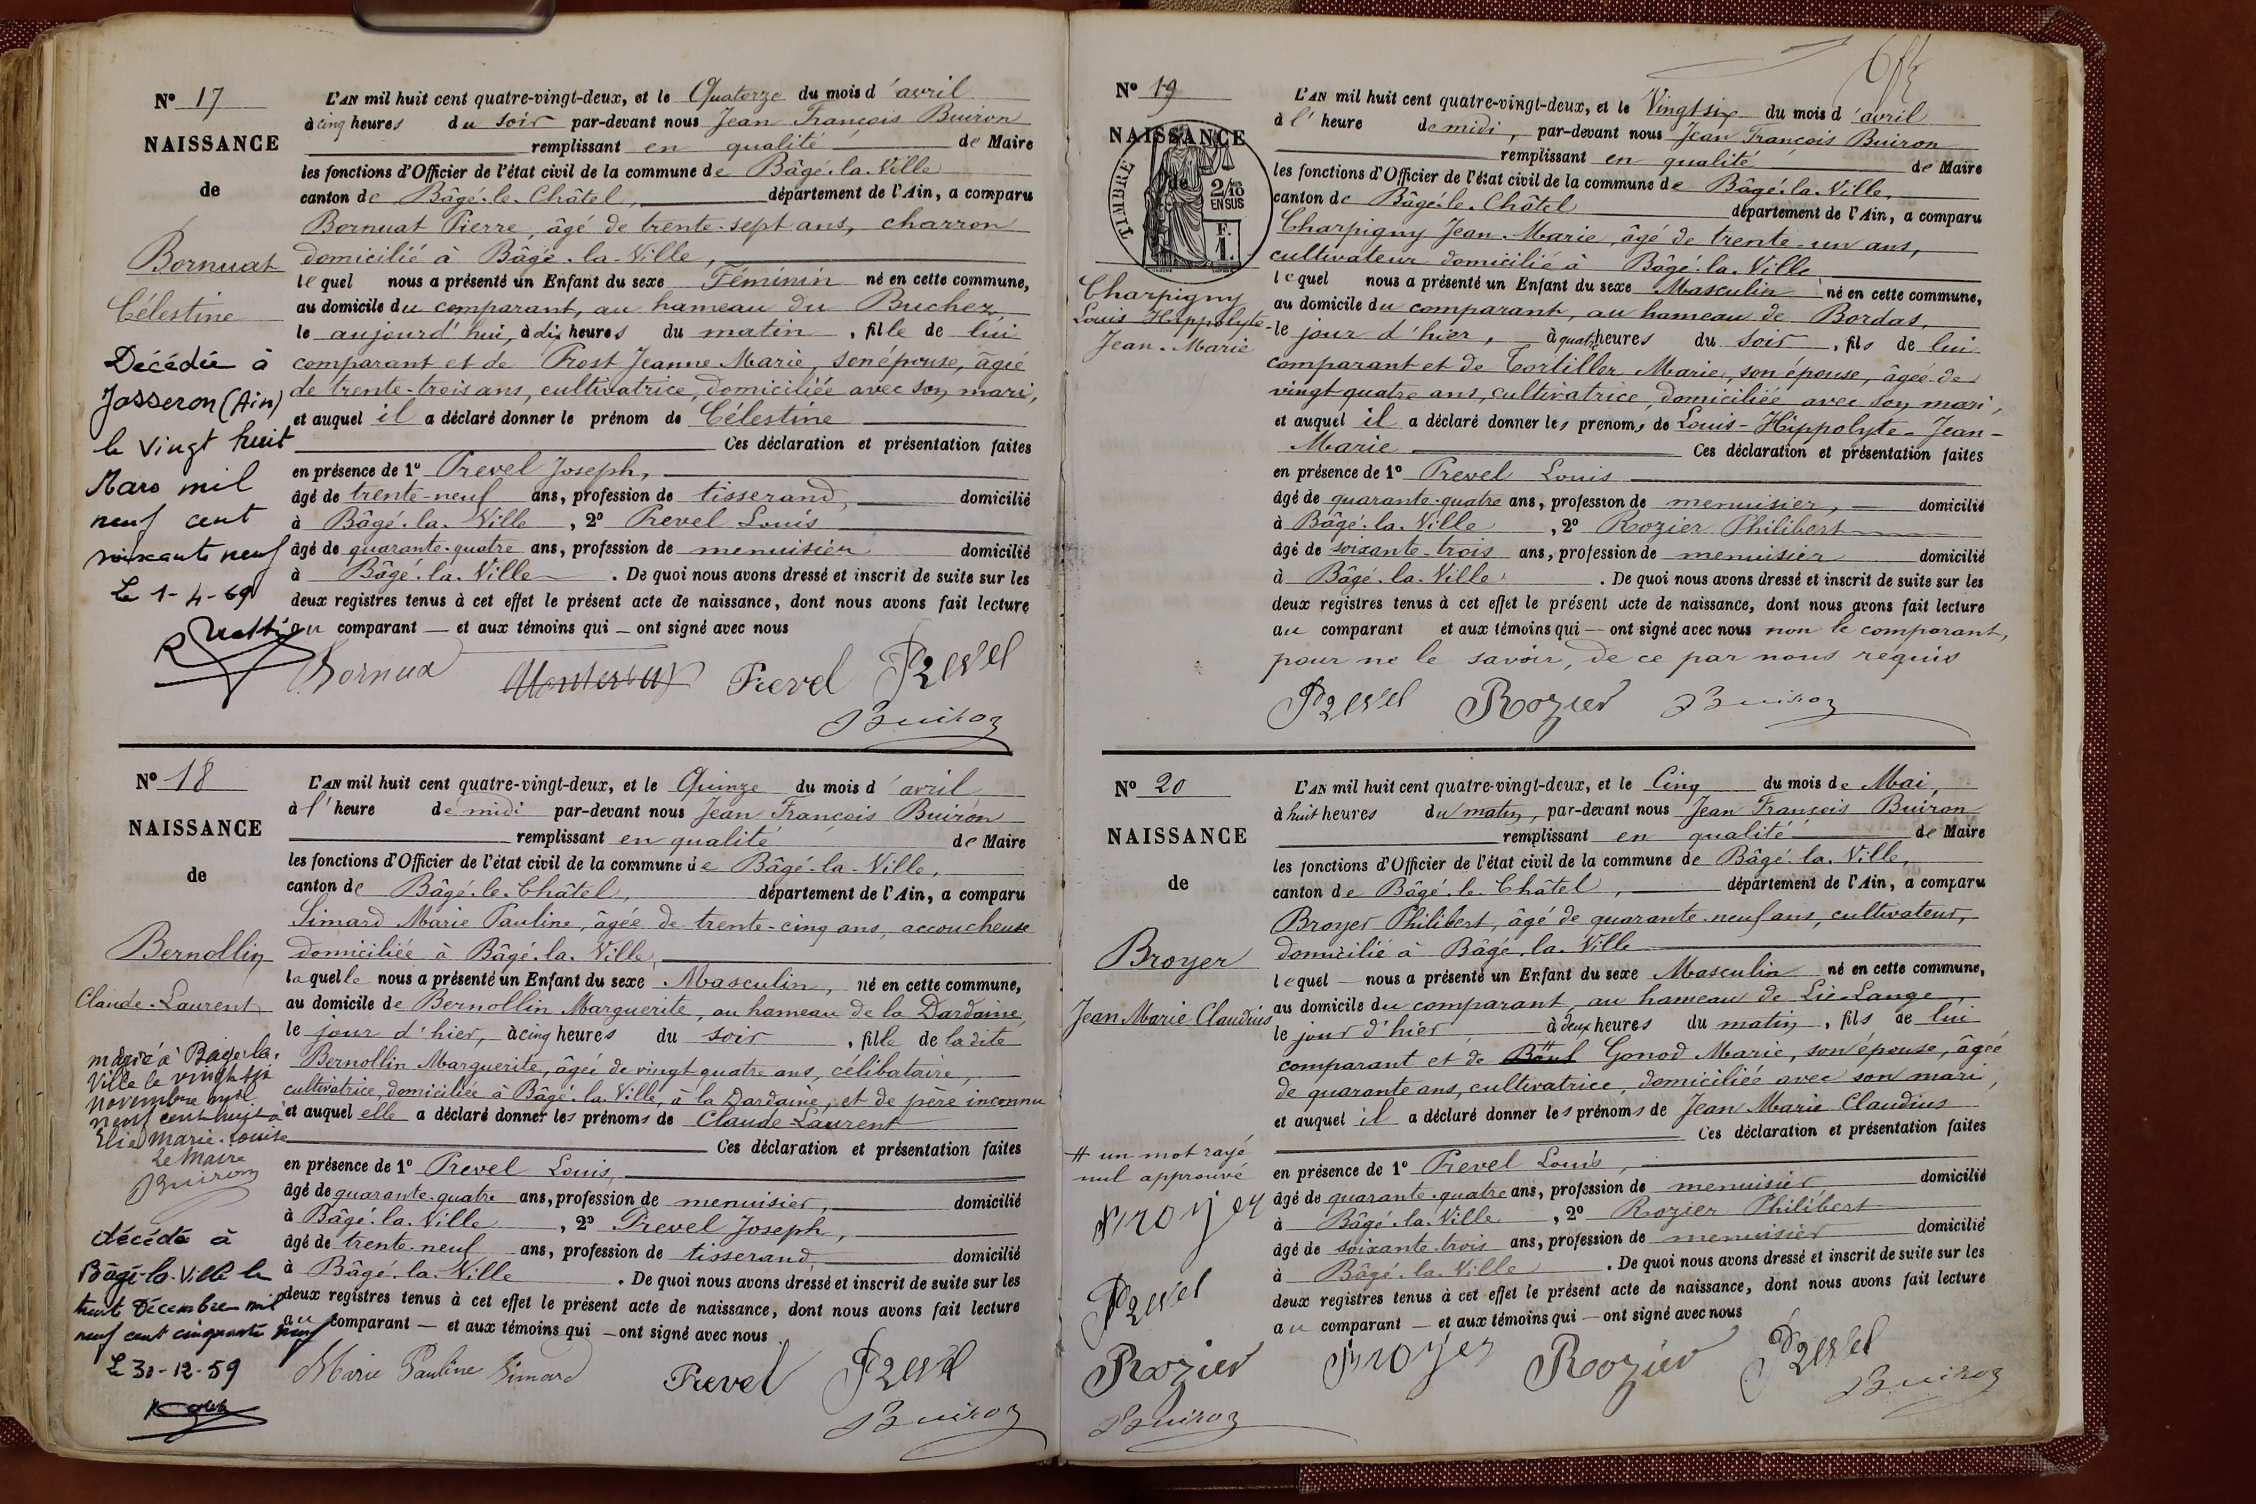 N° 17
NAISSANCE
de
Bornuat
Célestine
Décédée à
Jasseron (Ain)
le vingt huit
Mars mil
neuf cent
soixante neuf
Le 1-4-69
L'AN mil huit cent quatre-vingt-deux, et le Quatorze du mois d'avril
à cinq heures du soir par-devant nous Jean François Buiron
remplissant en qualité de Maire
les fonctions d'Officier de l'état civil de la commune de Bâgé-la-Ville
canton de Bâgé-le-Châtel, département de l'Ain, a comparu
Bornuat Pierre, âgé de trente-sept ans, charron
domicilié à Bâgé-la-Ville,
lequel nous a présenté un Enfant du sexe Féminin né en cette commune,
au domicile du comparant, au hameau du Buchez
le aujourd'hui, à dix heures du matin, fille de lui
comparant et de Prost Jeanne Marie, son épouse, âgée
de trente-trois ans, cultivatrice, domiciliée avec son mari,
et auquel il a déclaré donner le prénom de Célestine
Ces déclaration et présentation faites
en présence de 1° Prevel Joseph,
âgé de trente-neuf ans, profession de tisserand, domicilié
à Bâgé-la-Ville, 2° Prevel Louis
âgé de quarante-quatre ans, profession de menuisier domicilié
à Bâgé-la-Ville. De quoi nous avons dressé et inscrit de suite sur les
deux registres tenus à cet effet le présent acte de naissance, dont nous avons fait lecture
au comparant — et aux témoins qui — ont signé avec nous
Bornua Prevel Prevel
Buiron
N° 18
NAISSANCE
de
Bernollin
Claude-Laurent
marié à Bâgé-la-
Ville le vingt six
novembre mil
neuf cent huit à
Marie-Louise
Le Maire
Buiron
décédé à
Bâgé-la-Ville le
trente Décembre mil
neuf cent cinquante neuf
Le 30-12-59
L'AN mil huit cent quatre-vingt-deux, et le Quinze du mois d'avril
à l'heure de midi par-devant nous Jean François Buiron
remplissant en qualité de Maire
les fonctions d'Officier de l'état civil de la commune de Bâgé-la-Ville,
canton de Bâgé-le-Châtel, département de l'Ain, a comparu
Simard Marie Pauline, âgée de trente-cinq ans, accoucheuse
domiciliée à Bâgé-la-Ville,
laquelle nous a présenté un Enfant du sexe Masculin, né en cette commune,
au domicile de Bernollin Marguerite, au hameau de la Dardaine,
le jour d'hier, à cinq heures du soir, fille de ladite
Bernollin Marguerite, âgée de vingt quatre ans, célibataire,
cultivatrice, domiciliée à Bâgé-la-Ville, à la Dardaine, et de père inconnu
et auquel elle a déclaré donner les prénoms de Claude Laurent
Ces déclaration et présentation faites
en présence de 1° Prevel Louis,
âgé de quarante-quatre ans, profession de menuisier, domicilié
à Bâgé-la-Ville, 2° Prevel Joseph,
âgé de trente-neuf ans, profession de tisserand domicilié
à Bâgé-la-Ville. De quoi nous avons dressé et inscrit de suite sur les
deux registres tenus à cet effet le présent acte de naissance, dont nous avons fait lecture
au comparant — et aux témoins qui — ont signé avec nous
Marie Pauline Simard Prevel Prevel
Buiron
N° 19
NAISSANCE
de
TIMBRE
2/10
EN SUS
F.
1.
Charpigny
Louis Hippolyte-
Jean-Marie
L'AN mil huit cent quatre-vingt-deux, et le Vingt six du mois d'avril
à l'heure de midi, par-devant nous Jean François Buiron
remplissant en qualité de Maire
les fonctions d'Officier de l'état civil de la commune de Bâgé-la-Ville,
canton de Bâgé-le-Châtel département de l'Ain, a comparu
Charpigny Jean-Marie, âgé de trente-un ans,
cultivateur domicilié à Bâgé-la-Ville
lequel nous a présenté un Enfant du sexe Masculin né en cette commune,
au domicile du comparant, au hameau de Bordas,
le jour d'hier, à quatre heures du soir, fils de lui
comparant et de Tortiller Marie, son épouse, âgée de
vingt quatre ans, cultivatrice, domiciliée avec son mari,
et auquel il a déclaré donner les prénoms de Louis-Hippolyte-Jean-
Marie Ces déclaration et présentation faites
en présence de 1° Prevel Louis
âgé de quarante-quatre ans, profession de menuisier, domicilié
à Bâgé-la-Ville, 2° Rozier Philibert
âgé de soixante-trois ans, profession de menuisier domicilié
à Bâgé-la-Ville. De quoi nous avons dressé et inscrit de suite sur les
deux registres tenus à cet effet le présent acte de naissance, dont nous avons fait lecture
au comparant et aux témoins qui — ont signé avec nous non le comparant,
pour ne le savoir, de ce par nous requis
Prevel Rozier Buiron
N° 20
NAISSANCE
de
Broyer
Jean Marie Claudius
# un mot rayé
nul approuvé
Broyer
Prevel
Rozier
Buiron
L'AN mil huit cent quatre-vingt-deux, et le Cinq du mois de Mai,
à huit heures du matin, par-devant nous Jean François Buiron
remplissant en qualité de Maire
les fonctions d'Officier de l'état civil de la commune de Bâgé-la-Ville,
canton de Bâgé-le-Châtel, département de l'Ain, a comparu
Broyer Philibert, âgé de quarante-neuf ans, cultivateur,
domicilié à Bâgé-la-Ville
lequel — nous a présenté un Enfant du sexe Masculin né en cette commune,
au domicile du comparant, au hameau de Lie-Lange,
le jour d'hier à deux heures du matin, fils de lui
comparant et de # Gonod Marie, son épouse, âgée
de quarante ans, cultivatrice, domiciliée avec son mari,
et auquel il a déclaré donner les prénoms de Jean Marie Claudius
Ces déclaration et présentation faites
en présence de 1° Prevel Louis,
âgé de quarante-quatre ans, profession de menuisier domicilié
à Bâgé-la-Ville, 2° Rozier Philibert
âgé de soixante-trois ans, profession de menuisier domicilié
à Bâgé-la-Ville. De quoi nous avons dressé et inscrit de suite sur les
deux registres tenus à cet effet le présent acte de naissance, dont nous avons fait lecture
au comparant — et aux témoins qui — ont signé avec nous
Broyer Rozier Prevel
Buiron